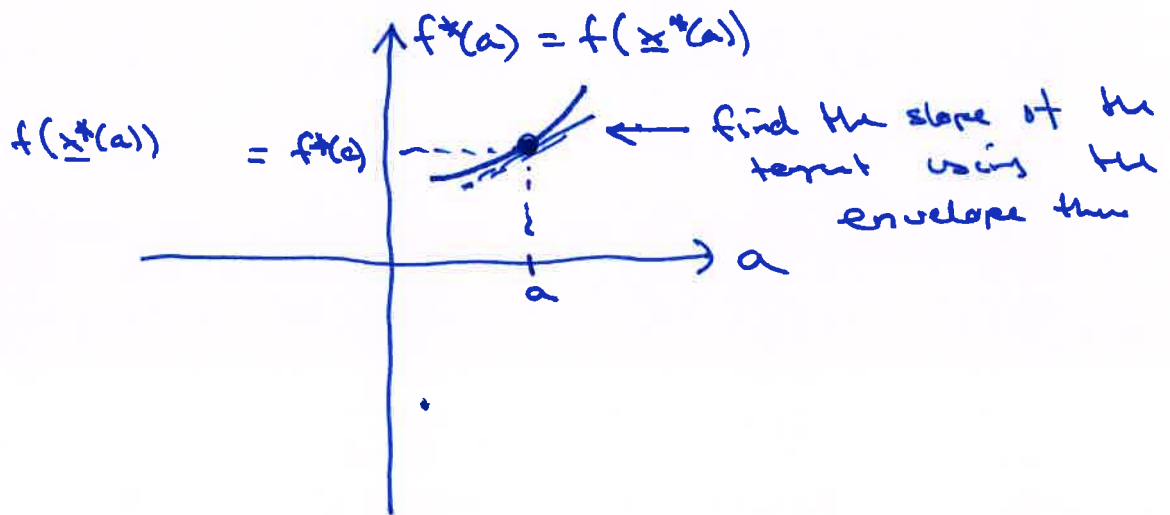 f*(a) = f(x*(a))
f(x*(a)) = f*(a)
← find the slope of the
tangent using the
envelope thm
a
a